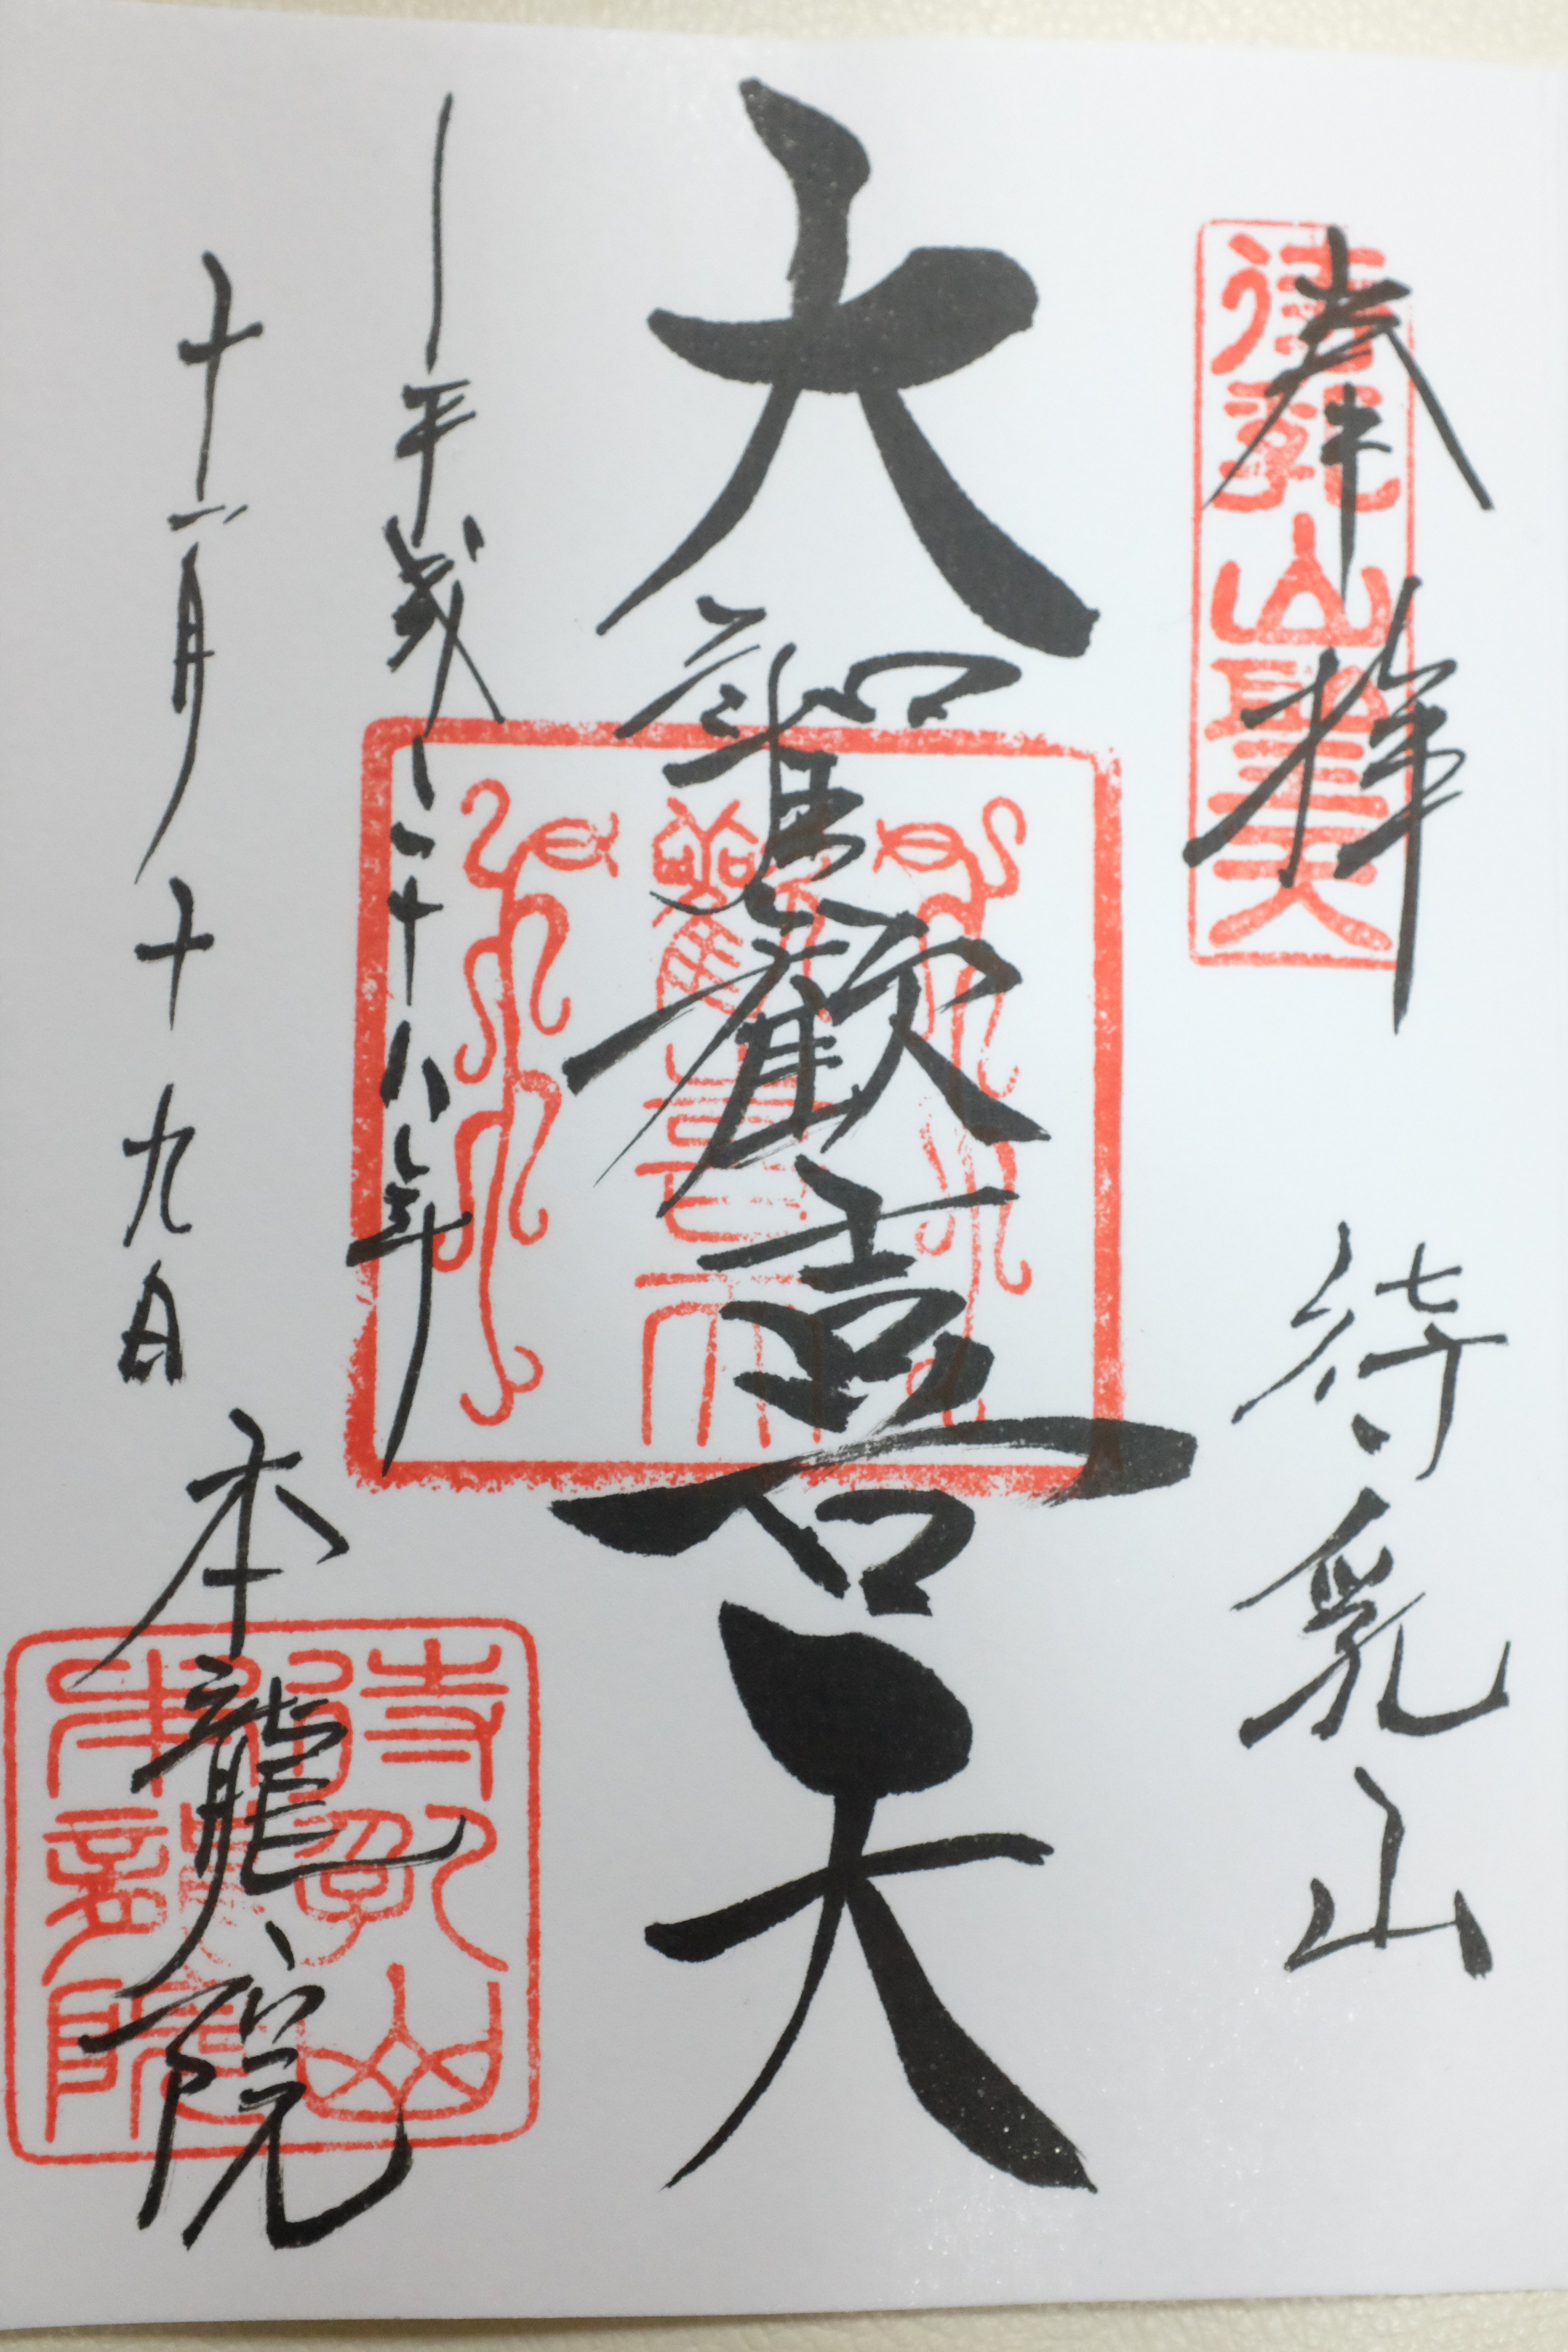 奉拝 待乳山
待乳山聖天
大聖歓喜天
歓喜天
平成二十八年
十一月十九日 本龍院
待乳山
本龍院